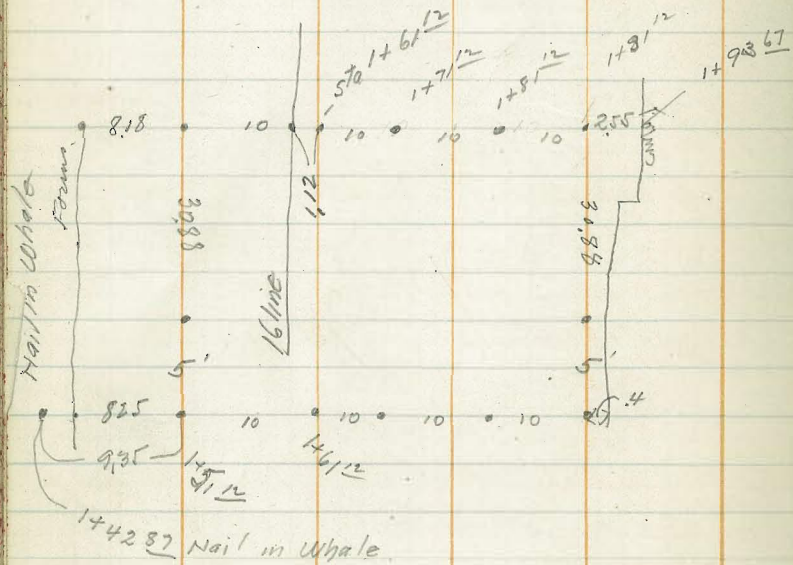 Sta 1+61 12
1+71 12
1+81 12
1+91 12
1+93 67
8.18
10
10
10
10
2.55
Forms
Forms
Nail in Whale
30.88
1.12
30.88
16 line
5'
5'
8.25
10
10
10
10
.4
9.35
1+51 12
1+61 12
1+42 87 Nail in Whale